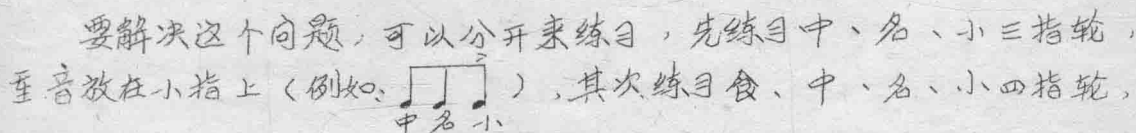 要解决这个问题，可以分开来练习，先练习中、名、小三指轮，
重音放在小指上（例如：
中 名 小
），其次练习食、中、名、小四指轮，